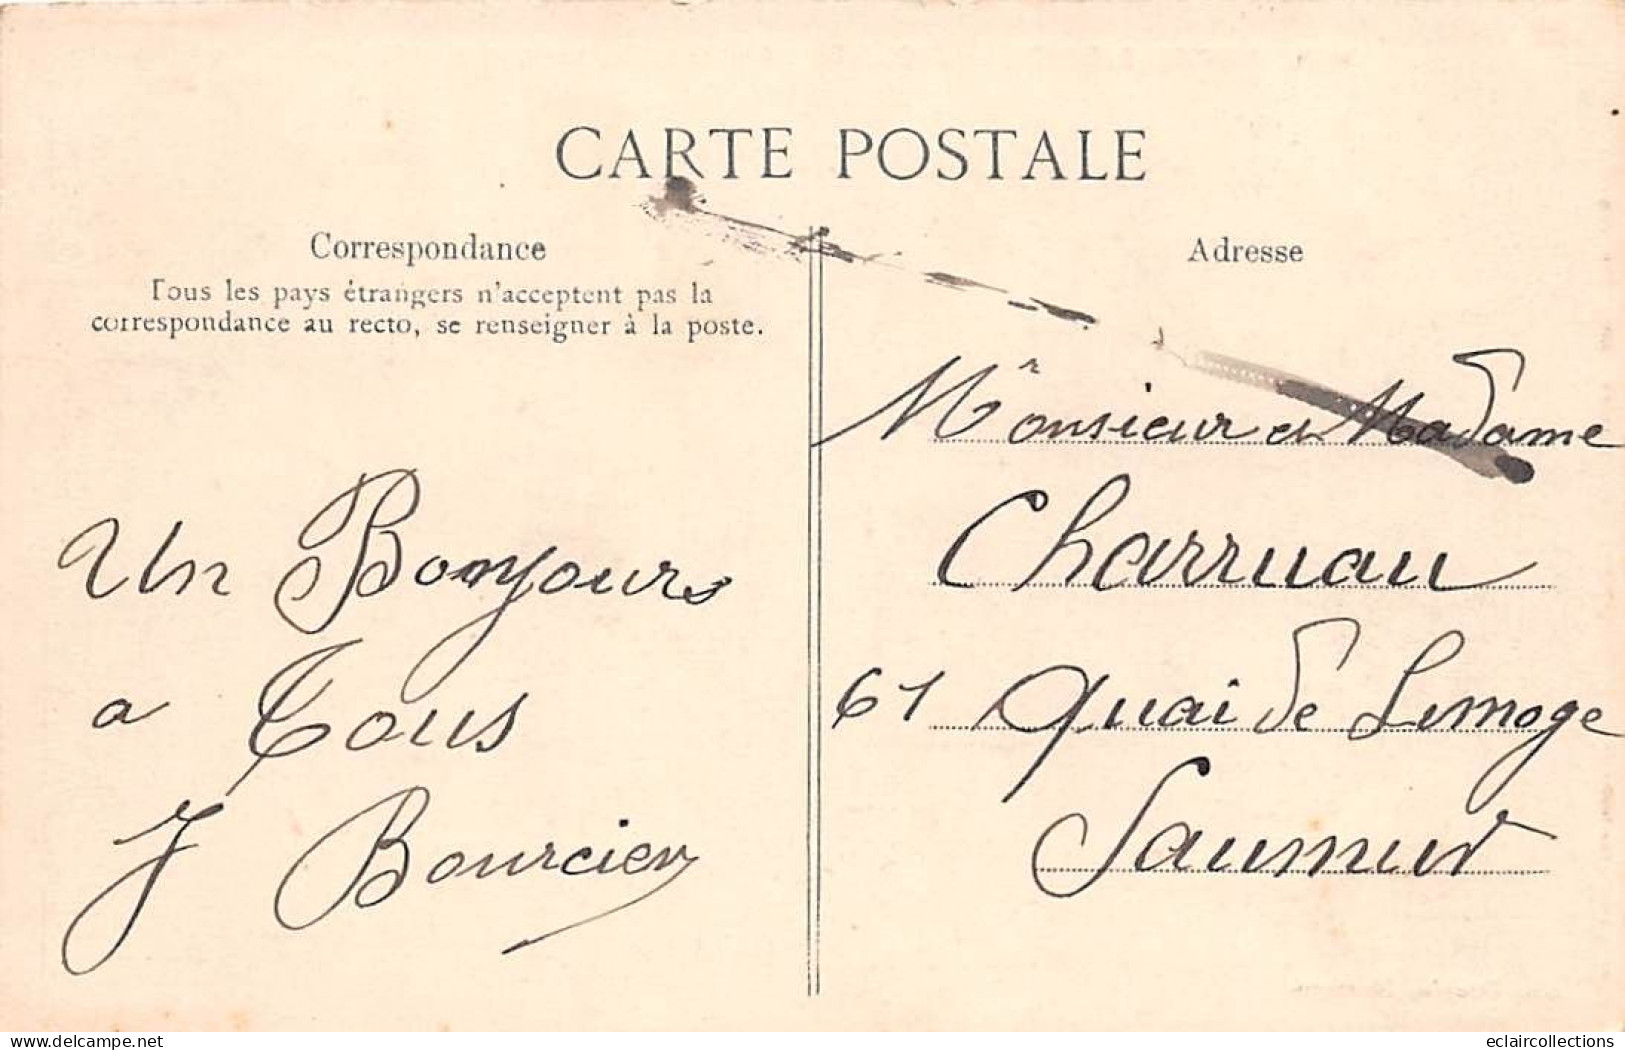 CARTE POSTALE
Correspondance
Tous les pays étrangers n'acceptent pas la
correspondance au recto, se renseigner à la poste.
Un Bonjours
a Tous
J Bourcier
Adresse
Monsieur et Madame
Charruau
61 Quai de Limoge
Saumur
delcampe.net
eclaircollections